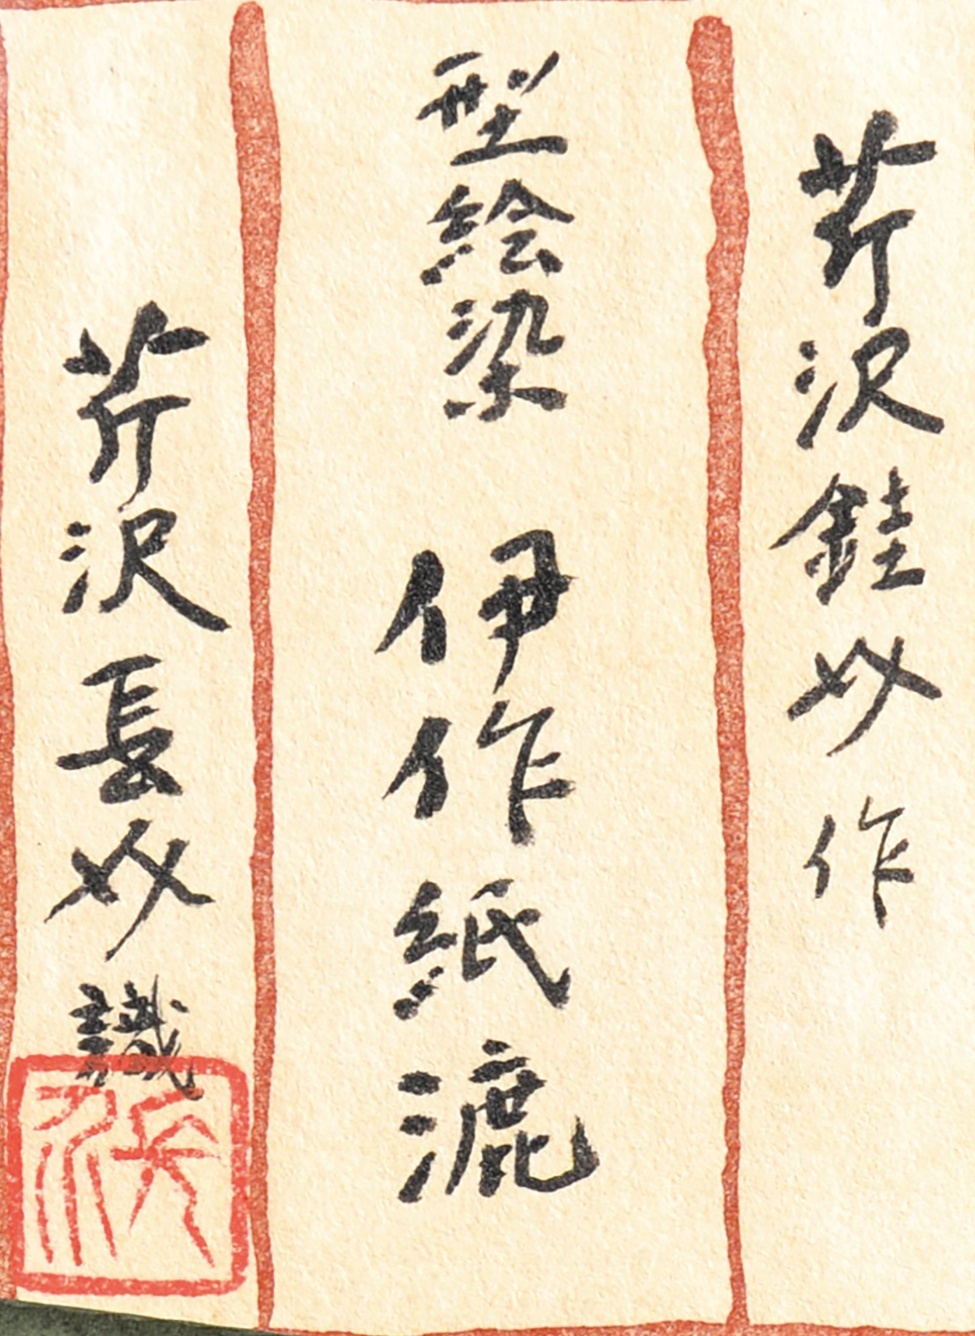 芹沢銈𠆢作
型絵染 伊作紙漉
芹沢長𠆢識